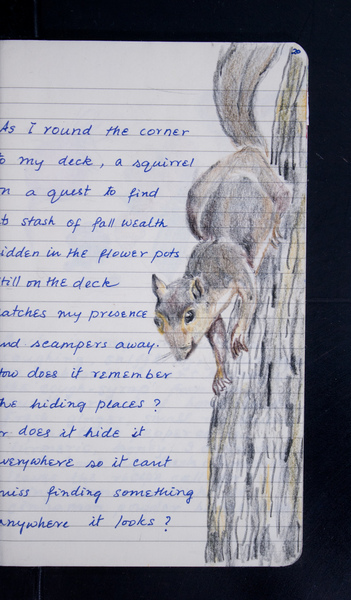 As I round the corner
my deck, a squirrel
a quest to find
stash of fall wealth
idden in the flower pots
till on the deck
atches my presence
nd scampers away.
ow does it remember
he hiding places?
r does it hide it
verywhere so it cant
miss finding something
anywhere it looks?